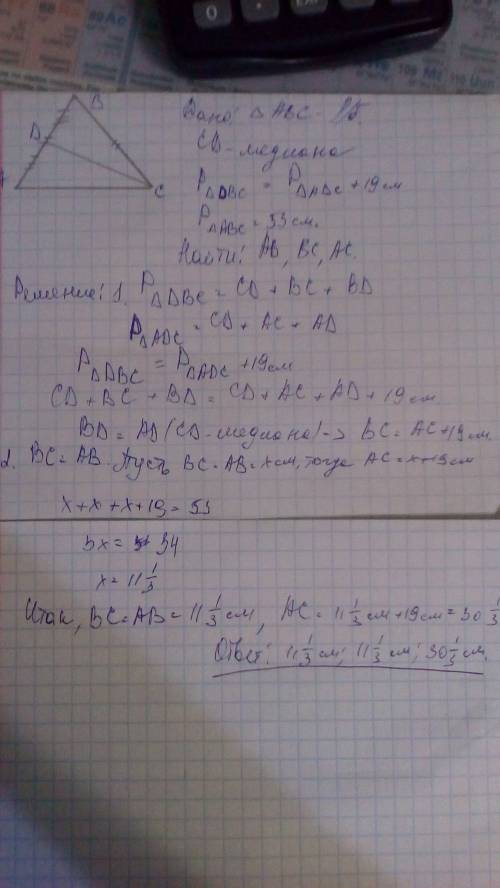 B
D
A
C
Дано: △ABC - рб.
CD - медиана
P△DBC = P△ADC + 19 см
P△ABC = 53 см.
Найти: AB, BC, AC.
Решение: 1. P△DBC = CD + BC + BD
P△ADC = CD + AC + AD
P△DBC = P△ADC + 19 см
CD + BC + BD = CD + AC + AD + 19 см
BD = AD (CD - медиана) -> BC = AC + 19 см
2. BC = AB. Пусть BC = AB = x см, тогда AC = x + 19 см
x + x + x + 19 = 53
3x = 34
x = 11 1/3
Итак, BC = AB = 11 1/3 см, AC = 11 1/3 см + 19 см = 30 1/3
Ответ: 11 1/3 см; 11 1/3 см; 30 1/3 см.